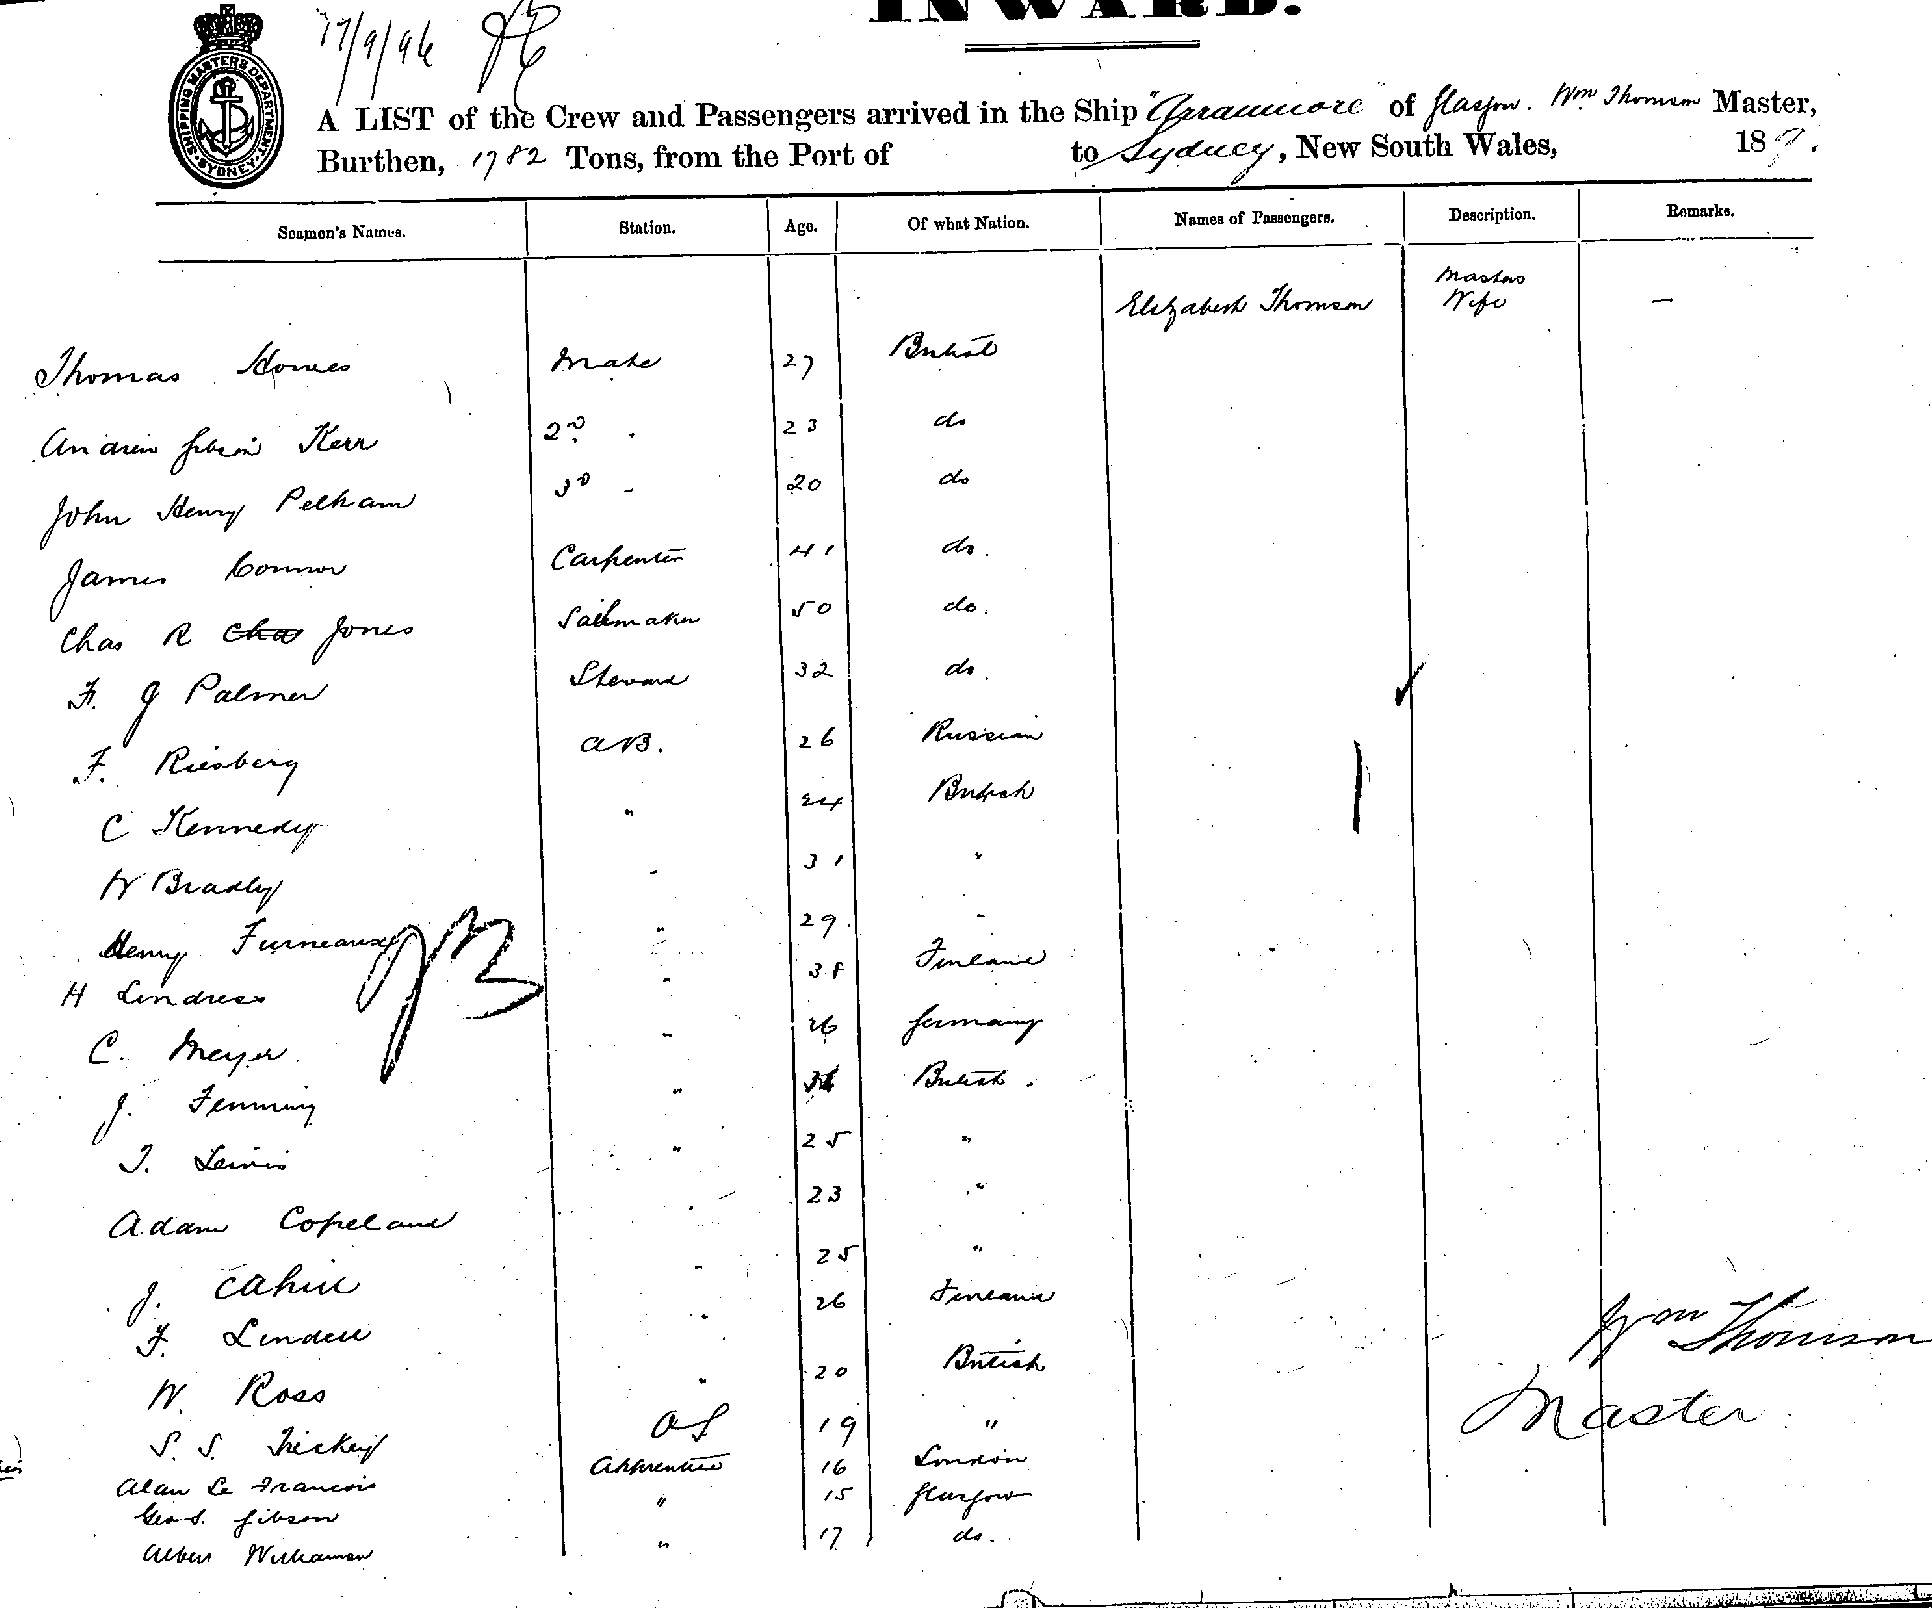 INWARD.
17/9/96
SHIPPING MASTERS DEPARTMENT SYDNEY
A LIST of the Crew and Passengers arrived in the Ship "Arranmore" of Glasgow. Wm Thomson Master,
Burthen, 1782 Tons, from the Port of to Sydney, New South Wales, 189.
Seamen's Names. Station. Age. Of what Nation. Names of Passengers. Description. Remarks.
Elizabeth Thomson Masters Wife —
Thomas Mate 27 British
Andrew Gibson Kerr 2nd " 23 do
John Henry Pelham 3d " 20 do
James Connor Carpenter 41 do.
Chas R Chas Jones Sailmaker 50 do.
F. G Palmer Steward 32 do.
F. Riesberg AB. 26 Russian
C Kennedy " 24 British
W Bradly " 31 "
Henry Furneaux " 29. "
H Lindress " 38 Finland
C. Meyer " 26 Germany
J. Fenning " British.
T. Lewis " 25 "
Adam Copeland " 23 "
J. Cahill " 25 "
F. Lindell " 26 Finland
W. Ross " 20 British
S. S. Trickey OS 19 "
Alan Le Francois Apprentice 16 London
Geo S. Gibson " 15 Glasgow
Albert Williamson " 17 do.
Wm Thomson
Master